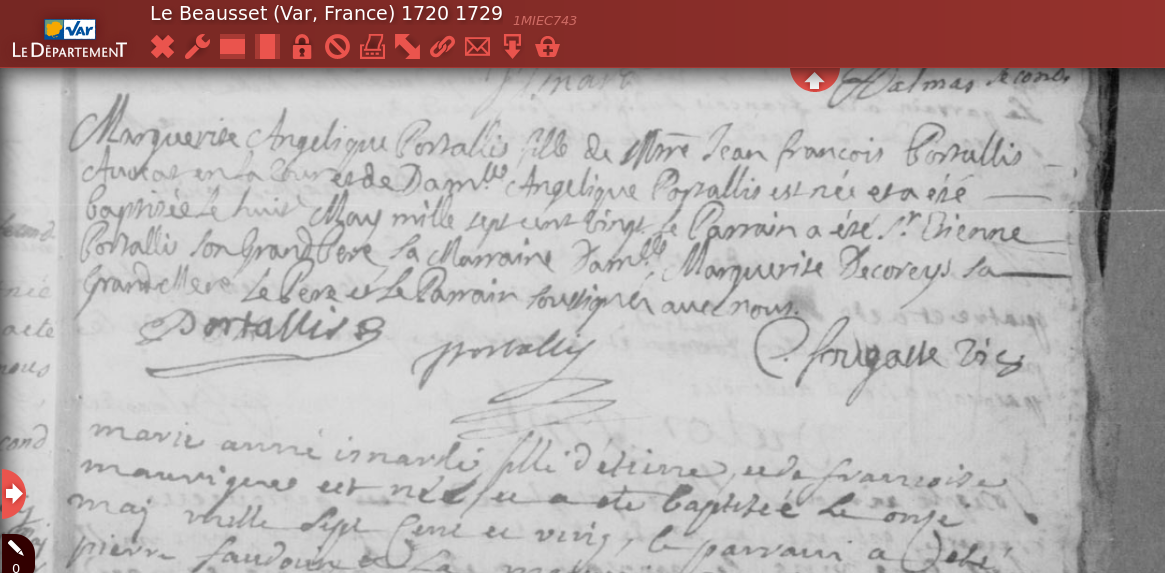 Le Beausset (Var, France) 1720 1729
1MIEC743
VAR
LE DÉPARTEMENT
Dalmas second.
Marguerite Angelique Portallis fille de Jean francois Portallis
Avocat en la Cour et de Damlle Angelique Portallis est née et a été
baptisée le huit May mille sept cent vingt le Parrain a été Sr. Etienne
Portalli son Grand Pere la Marraine Damlle. Marguerite Decoreys sa
Grand Mere le Pere et le Parrain soussignés avec nous.
Portallis
portally
fougasse vic
marie anne isnarde fille d'étienne, et de francoise
est née, et a eté baptisée le onze
maj mille sept cent et vint, le parrain a eté
pierre et la
acte
nous
cond
0